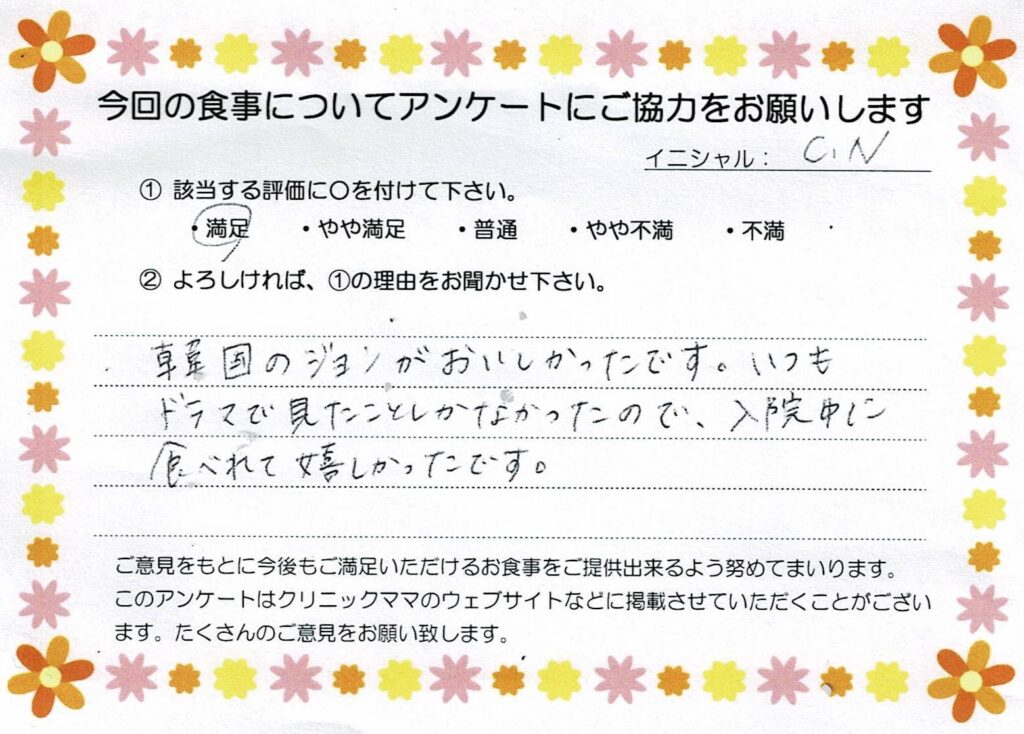 今回の食事についてアンケートにご協力をお願いします
イニシャル： C.N
① 該当する評価に〇を付けて下さい。
・満足 ・やや満足 ・普通 ・やや不満 ・不満
② よろしければ、①の理由をお聞かせ下さい。
韓国のジョンがおいしかったです。いつも
ドラマで見たことしかなかったので、入院中に
食べれて嬉しかったです。
ご意見をもとに今後もご満足いただけるお食事をご提供出来るよう努めてまいります。
このアンケートはクリニックママのウェブサイトなどに掲載させていただくことがござい
ます。たくさんのご意見をお願い致します。